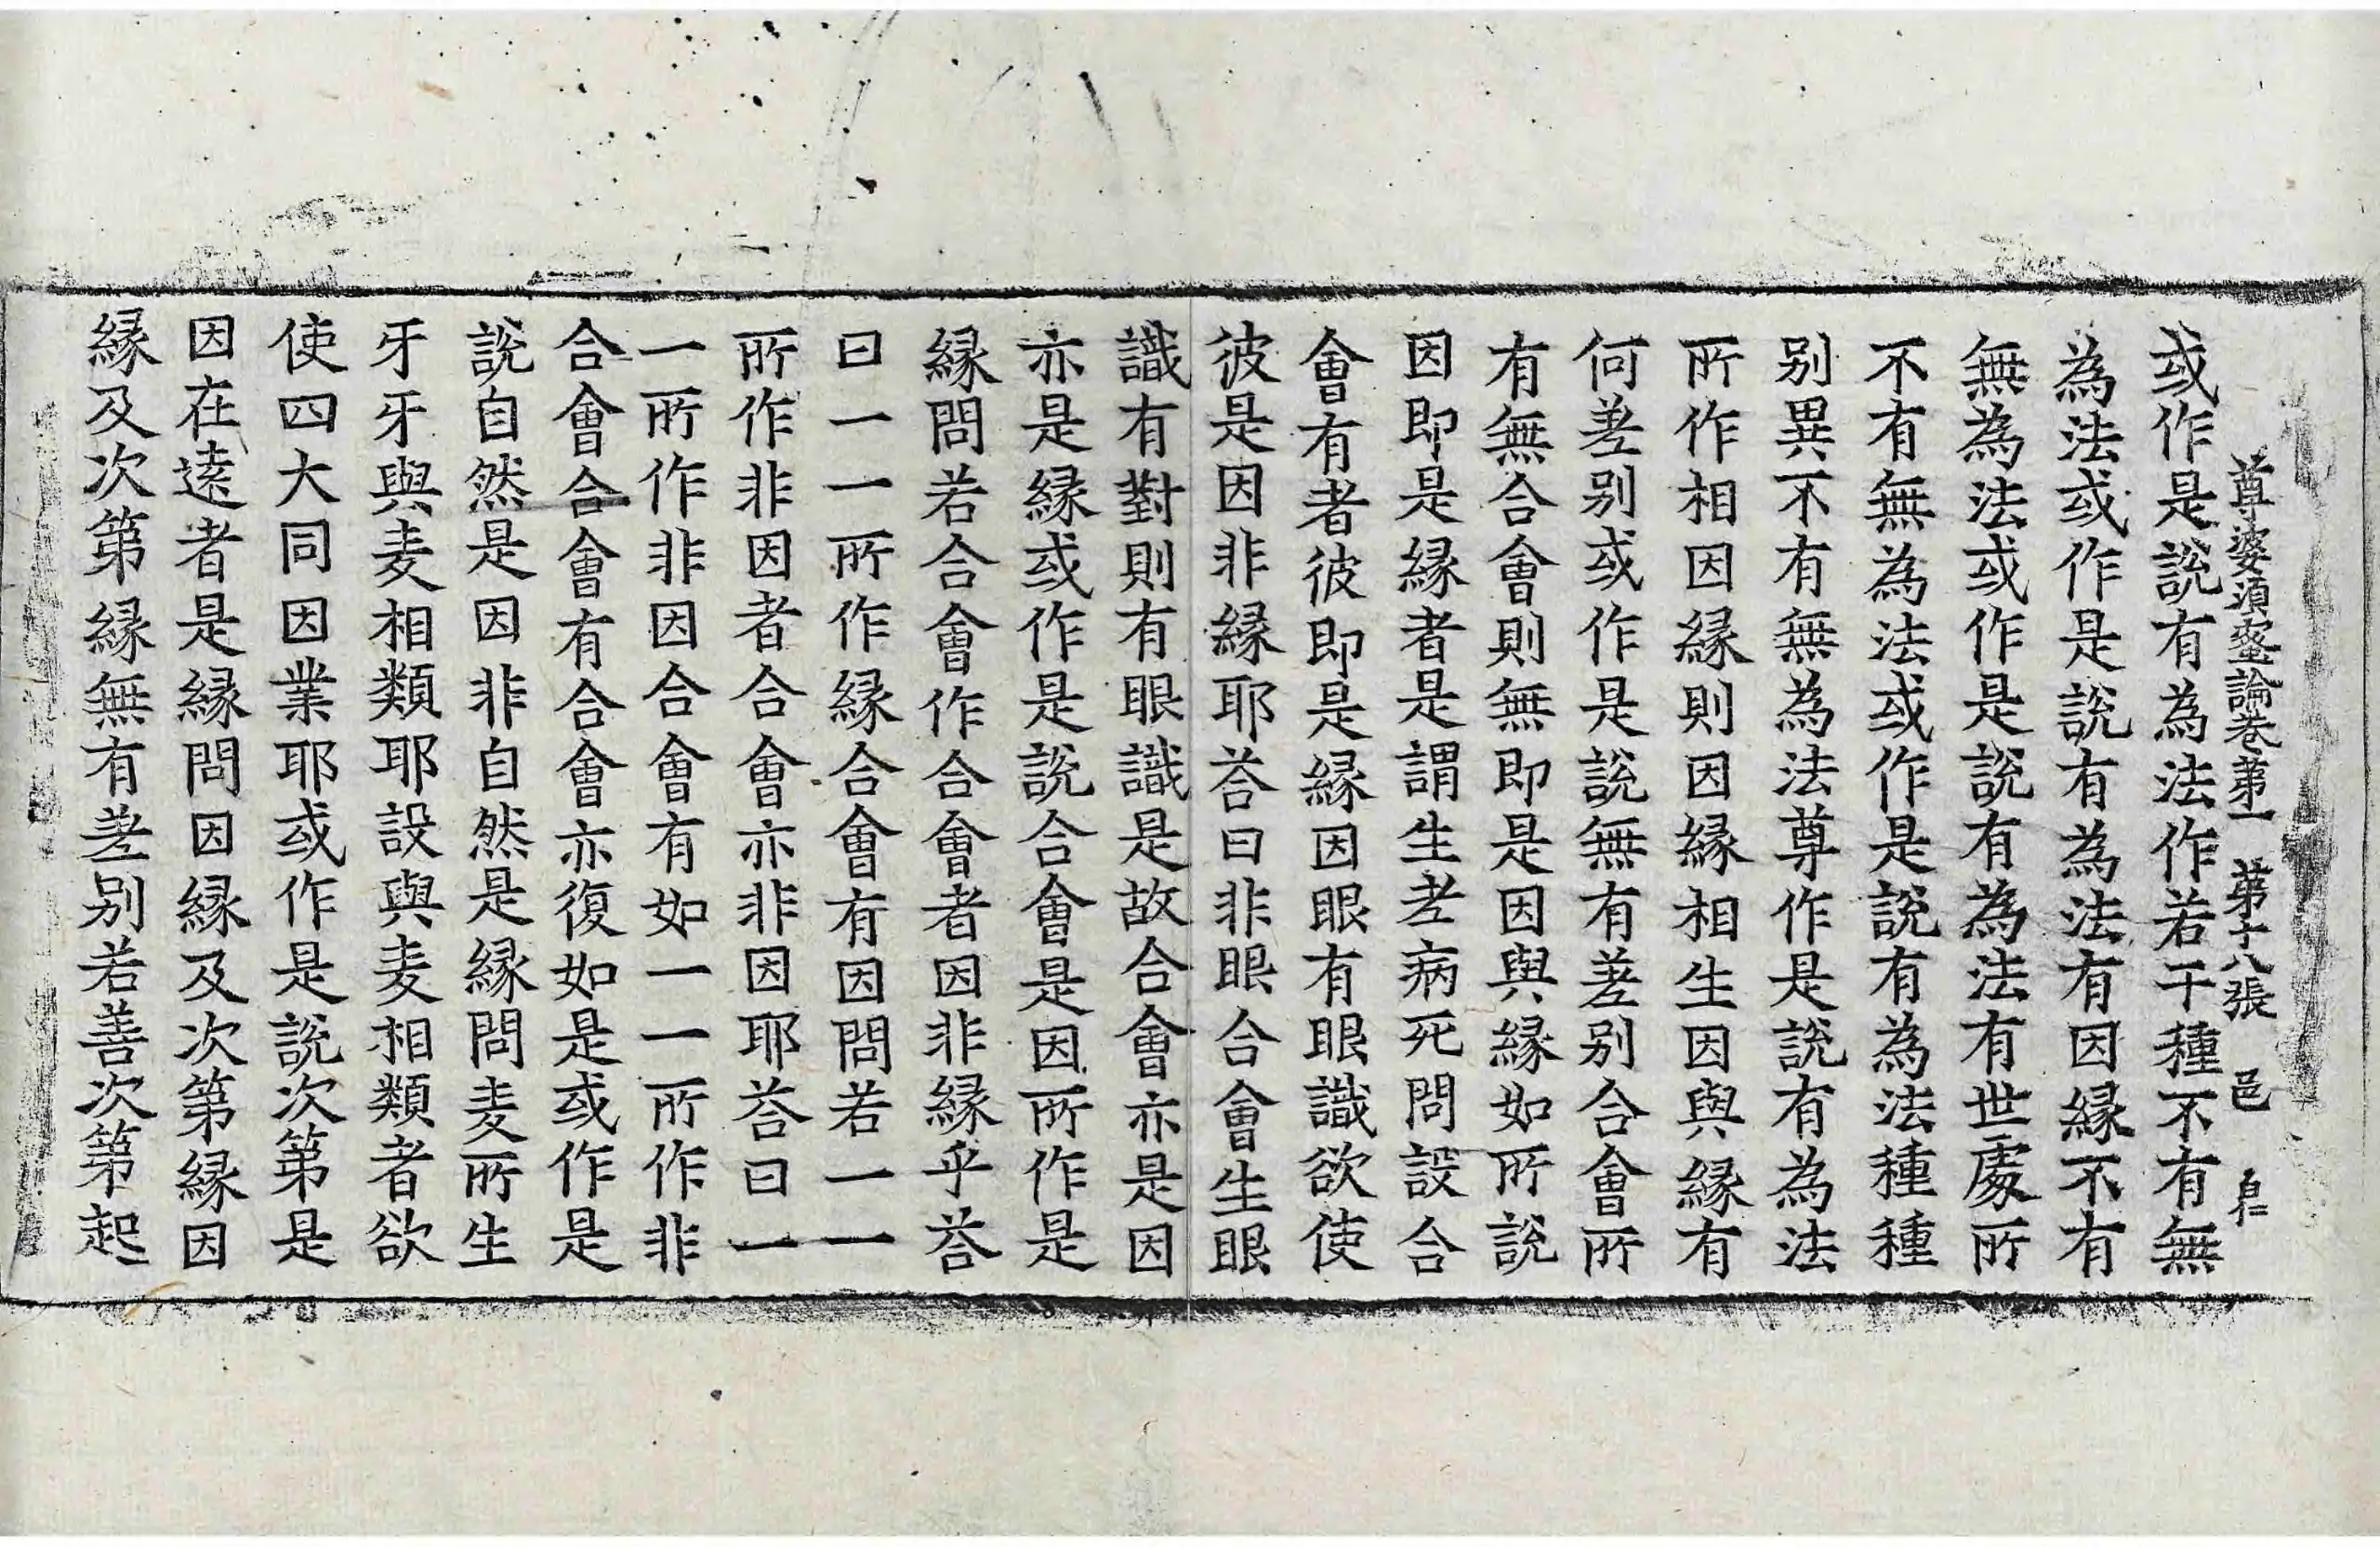 尊婆須蜜論卷第一　第十八張　邑
或作是說有為法作若干種不有無
為法或作是說有為法有因緣不有
無為法或作是說有為法有世處所
不有無為法或作是說有為法種種
別異不有無為法尊作是說有為法
所作相因緣則因緣相生因與緣有
何差別或作是說無有差別合會所
有無合會則無即是因與緣如所說
因即是緣者是謂生老病死問設合
會有者彼即是緣因眼有眼識欲使
彼是因非緣耶荅曰非眼合會生眼
識有對則有眼識是故合會亦是因
亦是緣或作是說合會是因所作是
緣問若合會作合會者因非緣乎荅
曰一一所作緣合會有因問若一一
所作非因者合會亦非因耶荅曰一
一所作非因合會有如一一所作非
合會合會有合會亦復如是或作是
說自然是因非自然是緣問麦所生
牙牙與麦相類耶設與麦相類者欲
使四大同因業耶或作是說次第是
因在逺者是緣問因緣及次第緣因
緣及次第緣無有差別若善次第起